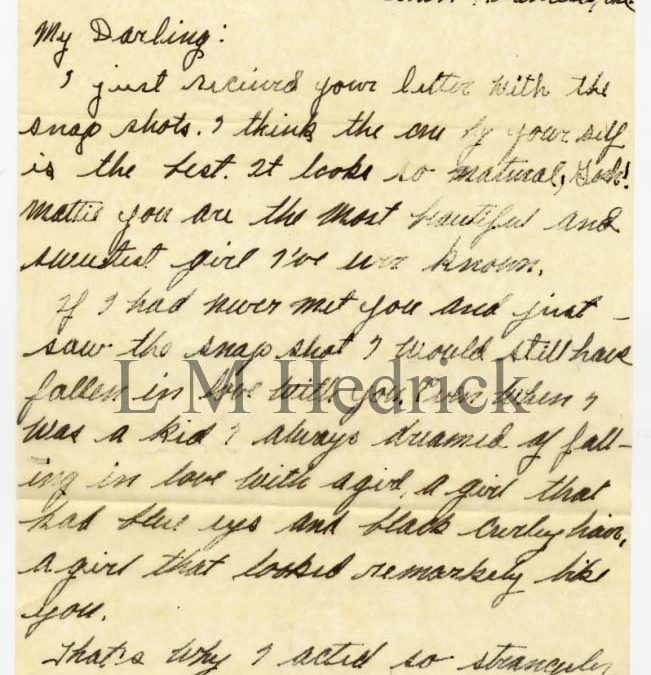 My Darling:
I just recieved your letter with the
snap shots. I think the one by your self
is the best. It looks so natural, Gosh!
Mattie you are the most beautiful and
sweetest girl I've ever known.
If I had never met you and just
saw the snap shot I would still have
fallen in love with you. Even when I
L M Hedrick
was a kid I always dreamed of fall-
ing in love with a girl, a girl that
had blue eys and black curley hair,
a girl that looked remarkely like
you.
That's why I acted so strangely